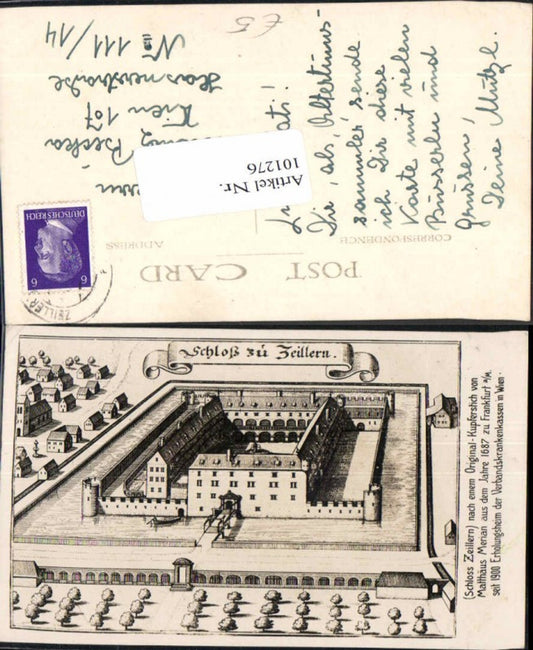 £5
Dir, als Altertums-
sammler sende
ich Dir diese
Karte mit vielen
Busserln und
Grüssen!
Deine Mutzl.
Wien 107
Hasnerstraße
No 111/14
Artikel Nr.
101276
POST CARD
CORRESPONDENCE
ADDRESS
DEUTSCHES REICH
6 6
ZEILLER
Schloß zu Zeillern.
(Schloss Zeillern) nach einem Original-Kupferstich von
Matthäus Merian aus dem Jahre 1687 zu Frankfurt a/M.
seit 1900 Erholungsheim der Verbandskrankenkassen in Wien.